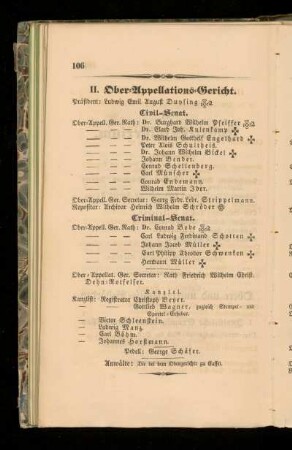 106
II. Ober-Appellations-Gericht.
Präsident: Ludwig Emil August Duysing
Civil-Senat.
Ober-Appell. Ger. Rath: Dr. Burghard Wilhelm Pfeiffer
— — — Dr. Joh. Kulenkamp
— — — Dr. Wilhelm Gottheif Engelhard
— — — Peter Alois Schultheis
— — — Dr. Johann Wilhelm Bickel
— — — Johann Bender.
— — — Conrad Schellenberg.
— — — Carl Münscher
— — — Conrad Endemann.
— — — Wilhelm Martin Iber.
Ober-Appell. Ger. Secretar: Georg Frdr. Ldw. Strippelmann
Repositar: Archivar Heinrich Wilhelm Schröder
Criminal-Senat.
Ober-Appell. Ger. Rath: Dr. Conrad Bode
— — — Carl Ludwig Ferdinand Schotten
— — — Johann Jacob Müller
— — — Carl Philipp Theodor Schwenken
— — — Hermann Müller
Ober-Appellat. Ger. Secretar: Rath Friedrich Wilhelm Christ.
Dehn-Rotfelser.
Kanzlei.
Kanzlist: Registrator Christoph Beyer.
— Gottlieb Wagner, zugleich Stempel- und
Sportel-Erheber.
— Victor Schleenstein.
— Ludwig Manz.
— Carl Böhm.
— Johannes Horstmann.
Pedell: George Schäfer.
Anwälte: Die bei dem Obergerichte zu Cassel.